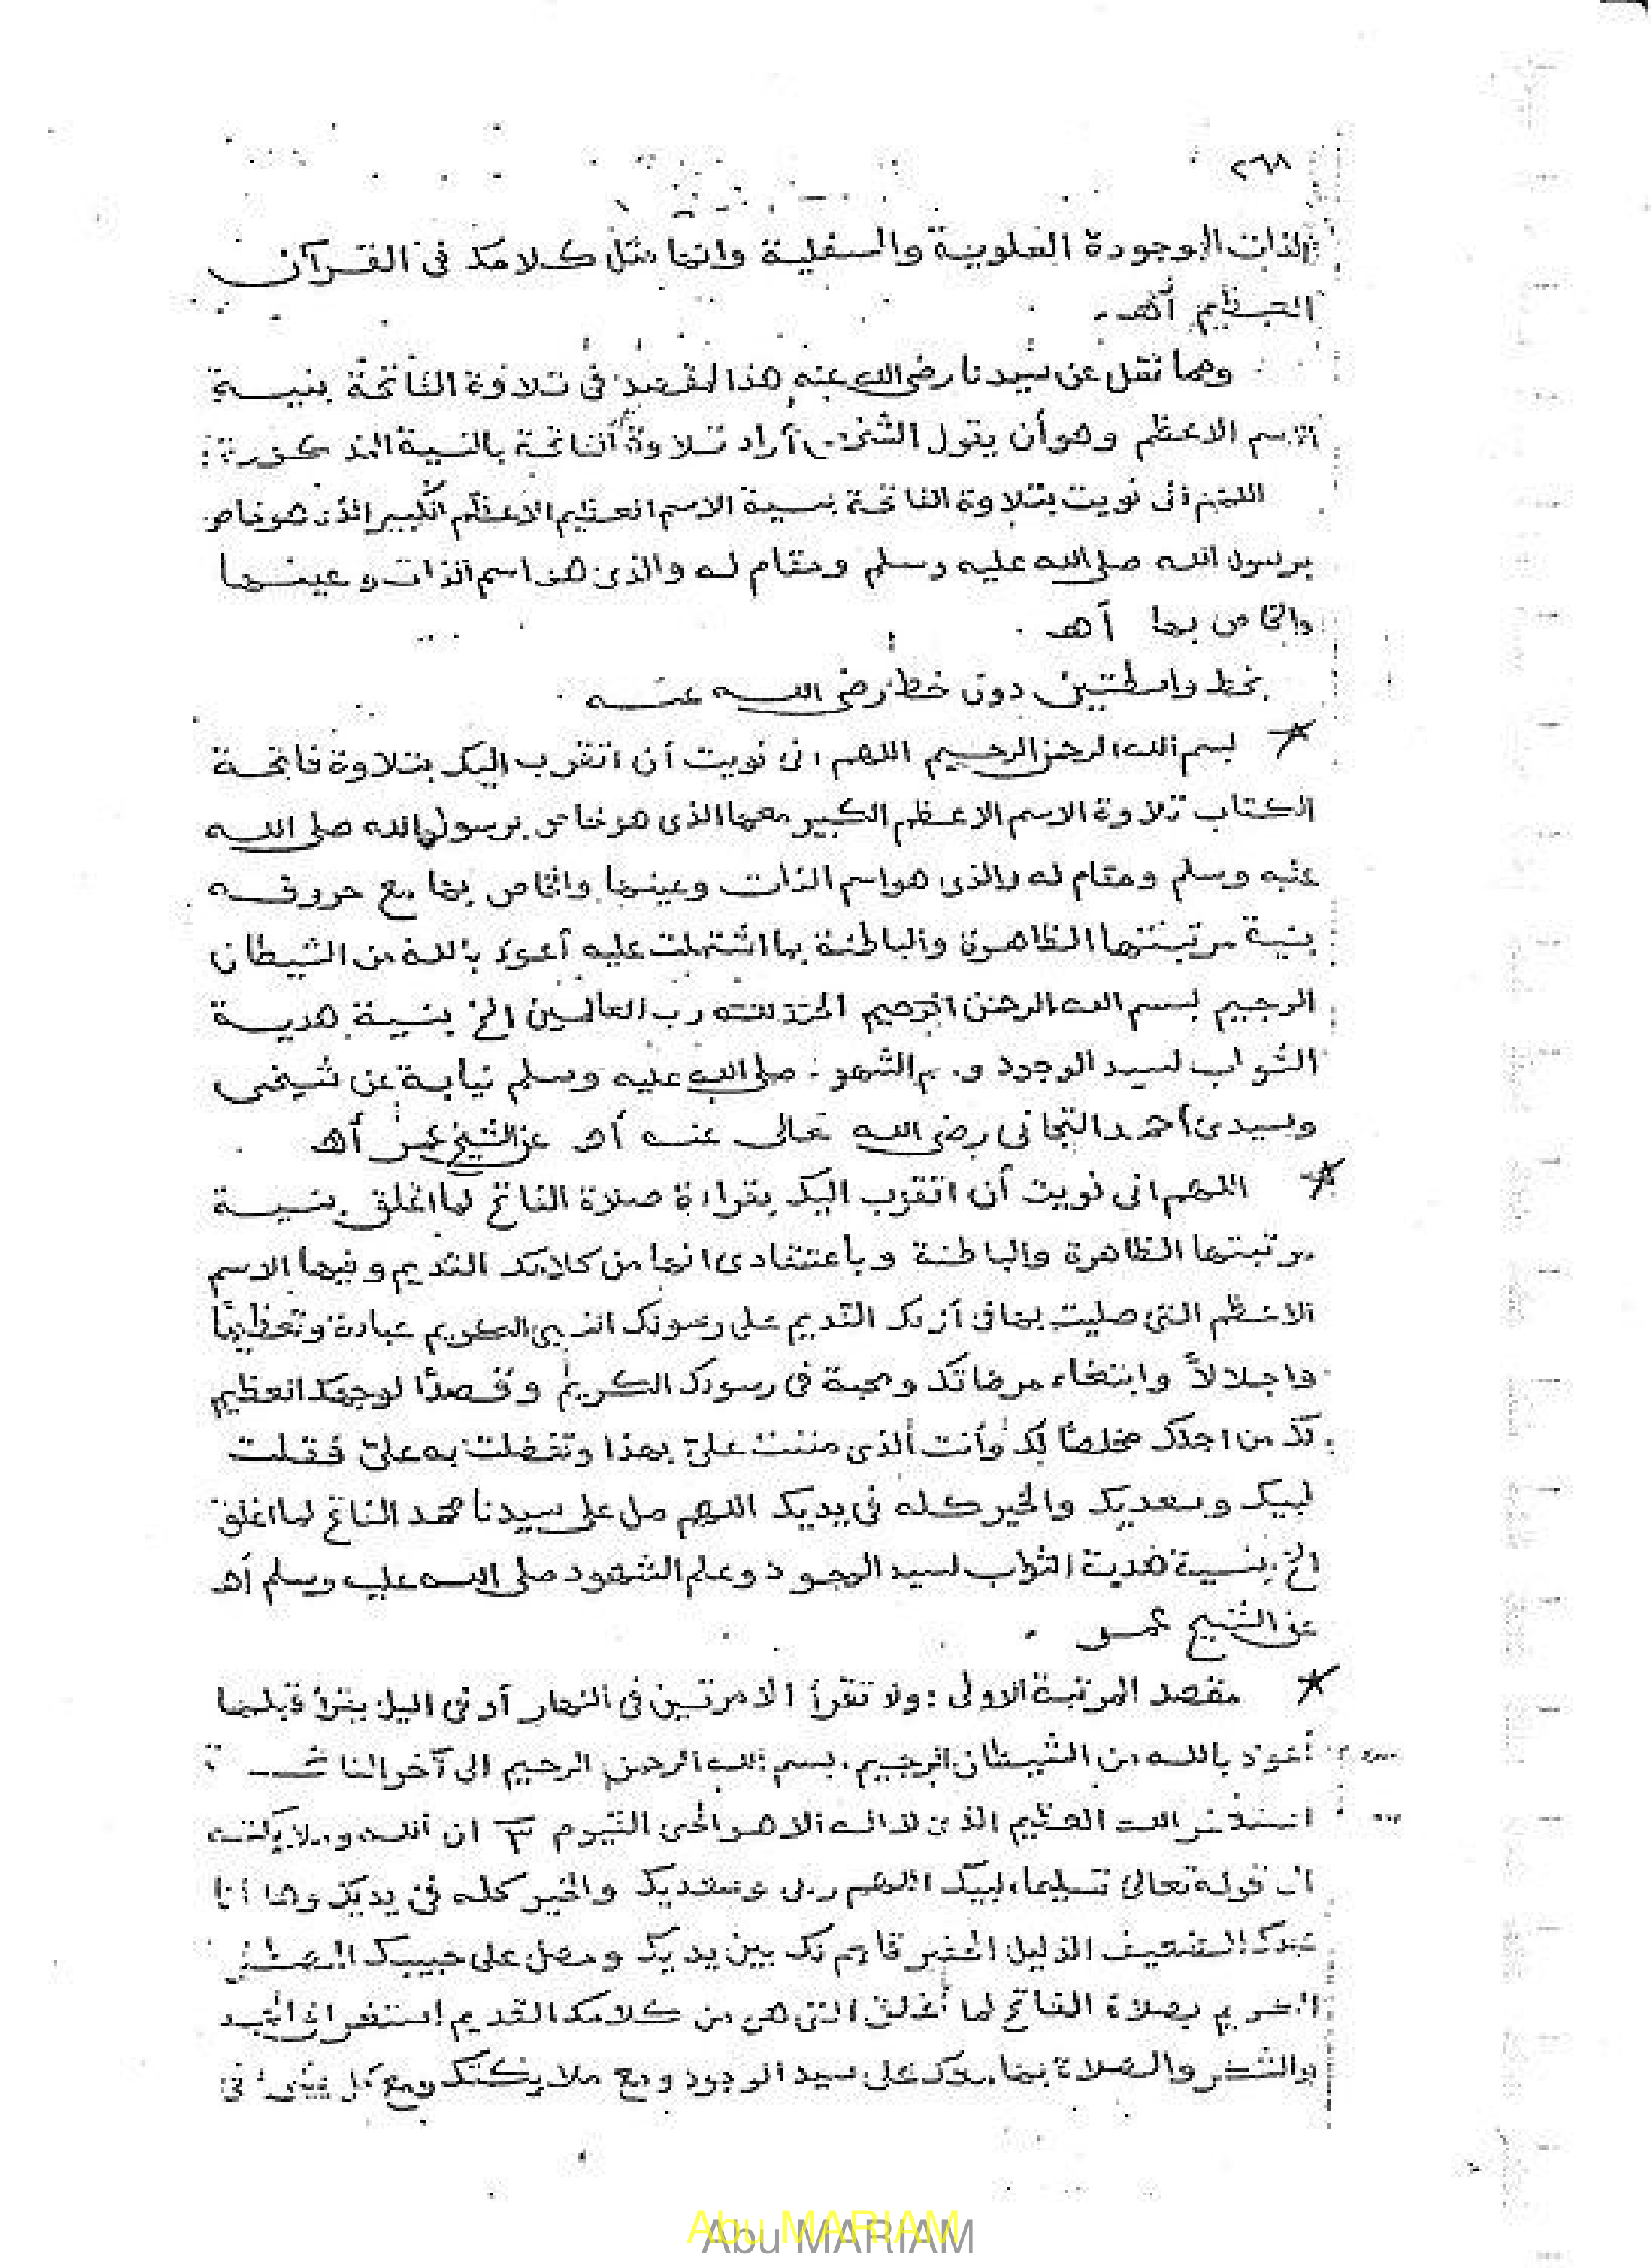 ٢٦٨
الذات الموجودة العلوية والسفلية وانما مثل كلامك فى القرآن
العظيم أهـ
ومما نقل عن سيدنا رضى الله عنه هذا المقصد فى تلاوة الفاتحة بنية
الاسم الاعظم وهو أن يقول الشخص أراد تلاوة الفاتحة بالنية المذكورة:
اللهم انى نويت بتلاوة الفاتحة بنية الاسم العظيم الاعظم الكبير الذى هو خاص
برسول الله صلى الله عليه وسلم ومقام له والذى هو اسم الذات وعينها
والخاص بها أهـ
بخط واسطتين دون خط رضى الله عنه
بسم الله الرحمن الرحيم اللهم انى نويت أن اتقرب اليك بتلاوة فاتحة
الكتاب تلاوة الاسم الاعظم الكبير معها الذى هو خاص برسول الله صلى الله
عليه وسلم ومقام له والذى هو اسم الذات وعينها والخاص بها مع حروفه
بنية مرتبتها الظاهرة والباطنة بما اشتملت عليه أعوذ بالله من الشيطان
الرجيم بسم الله الرحمن الرحيم الحمد لله رب العالمين الخ بنية هدية
الثواب لسيد الوجود و. م الشهو. صلى الله عليه وسلم نيابة عن شيخى
وسيدى أحمد التجانى رضى الله تعالى عنه أهـ عن الشيخ عمر أهـ
اللهم انى نويت أن اتقرب اليك بقراءة صلاة الفاتح لما اغلق بنية
مرتبتها الظاهرة والباطنة وباعتقادى انها من كلامك القديم وفيها الاسم
الاعظم التى صليت بها فى أزلك القديم على رسولك النبى الكريم عبادة وتعظيمًا
واجلالاً وابتغاء مرضاتك ومحبة فى رسولك الكريم وقصدًا لوجهك العظيم
لك من اجلك مخلصًا لك وأنت الذى مننت علىّ بهذا وتفضلت به علىّ فقلت
لبيك وسعديك والخير كله فى يديك اللهم صل على سيدنا محمد الفاتح لما اغلق
الخ بنية هدية الثواب لسيد الوجود وعلم الشهود صلى الله عليه وسلم أهـ
عن الشيخ عمر
مقصد المرتبة الاولى : ولا تقرأ الا مرتين فى النهار أو فى اليل يقرأ قبلها
أعوذ بالله من الشيطان الرجيم. بسم الله الرحمن الرحيم الى آخر الفاتحة
استغفر الله العظيم الذى لا اله الا هو الحى القيوم ٣ ان الله وملايكته
الى قوله تعالى تسليما، لبيك اللهم ربى وسعديك والخير كله فى يديك وها أنا
عبدك الضعيف الذليل الحقير قايم لك بين يديك ومصل على حبيبك المصطفى
الكريم بصلاة الفاتح لما أغلق التى هى من كلامك القديم استغراقى الحمد
والشكر والصلاة بها على سيد الوجود ومع ملايكتك ومع كل شىء فى
Abu MARIAM